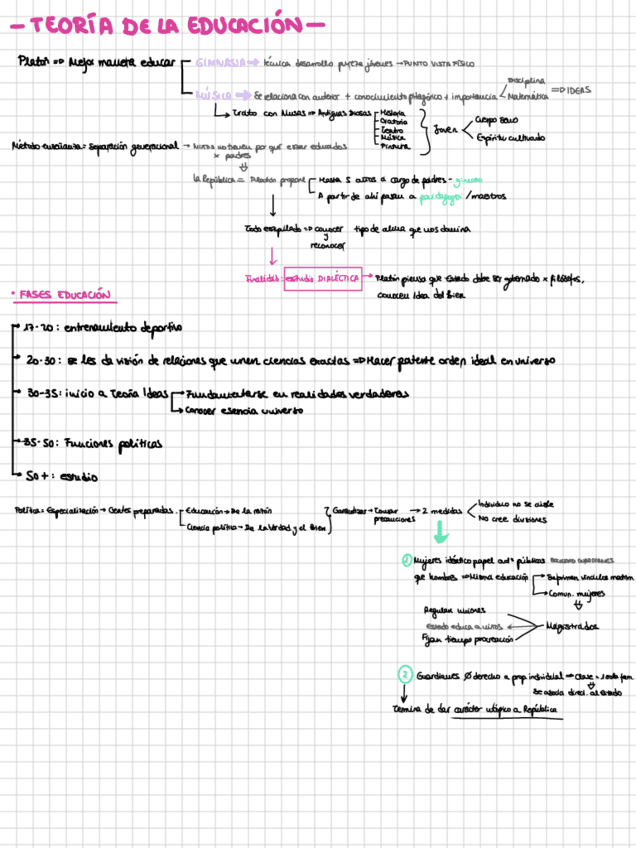 - TEORÍA DE LA EDUCACIÓN -
Platón => Mejor manera educar
GIMNASIA => técnica desarrollo jóvenes → PUNTO VISTA FÍSICO
MÚSICA → Se relaciona con + conocimiento pitagórico + importancia
Disciplina
Matemática => IDEAS
Trato con Musas => Antiguas Diosas
Historia
Oratoria
Teatro
Música
Pintura
Joven
Cuerpo sano
Espíritu cultivado
Método enseñanza = Separación generacional → no tienen por qué estar educados
x padres
la República = Platón propone
Hasta 5 años a cargo de padres -
A partir de ahí pasan a pedagogo / maestros
Todo => conocer tipo de alma que nos domina
y
reconocer
Finalidad: estudio DIALÉCTICA → Platón piensa que Estado debe ser gobernado x filósofos,
conocen Idea del Bien
• FASES EDUCACIÓN
17-20: entrenamiento deportivo
20-30: se les da visión de relaciones que unen ciencias exactas => Hacer patente orden ideal en universo
30-35: inicio a Teoría Ideas
Fundamentarse en realidades verdaderas
Conocer esencia universo
35-50: Funciones políticas
50+: estudio
Política = Especialización → Gentes preparadas.
Educación → De la razón
Ciencia política → De la Verdad y el Bien
Garantizar → Tomar
precauciones
→ 2 medidas
Individuo no se aísle
No cree divisiones
1 Mujeres idéntico papel actº públicas
que hombres => Misma educación
Suprimen vínculos matrim
Comun. mujeres
Magistrados
Regulan uniones
Estado educa a niños
Fijan tiempo procreación
2 Guardianes Ø derecho a prop individual => Clase = 1 sola fam.
Se asocia direct. al estado
Termina de dar carácter utópico a República